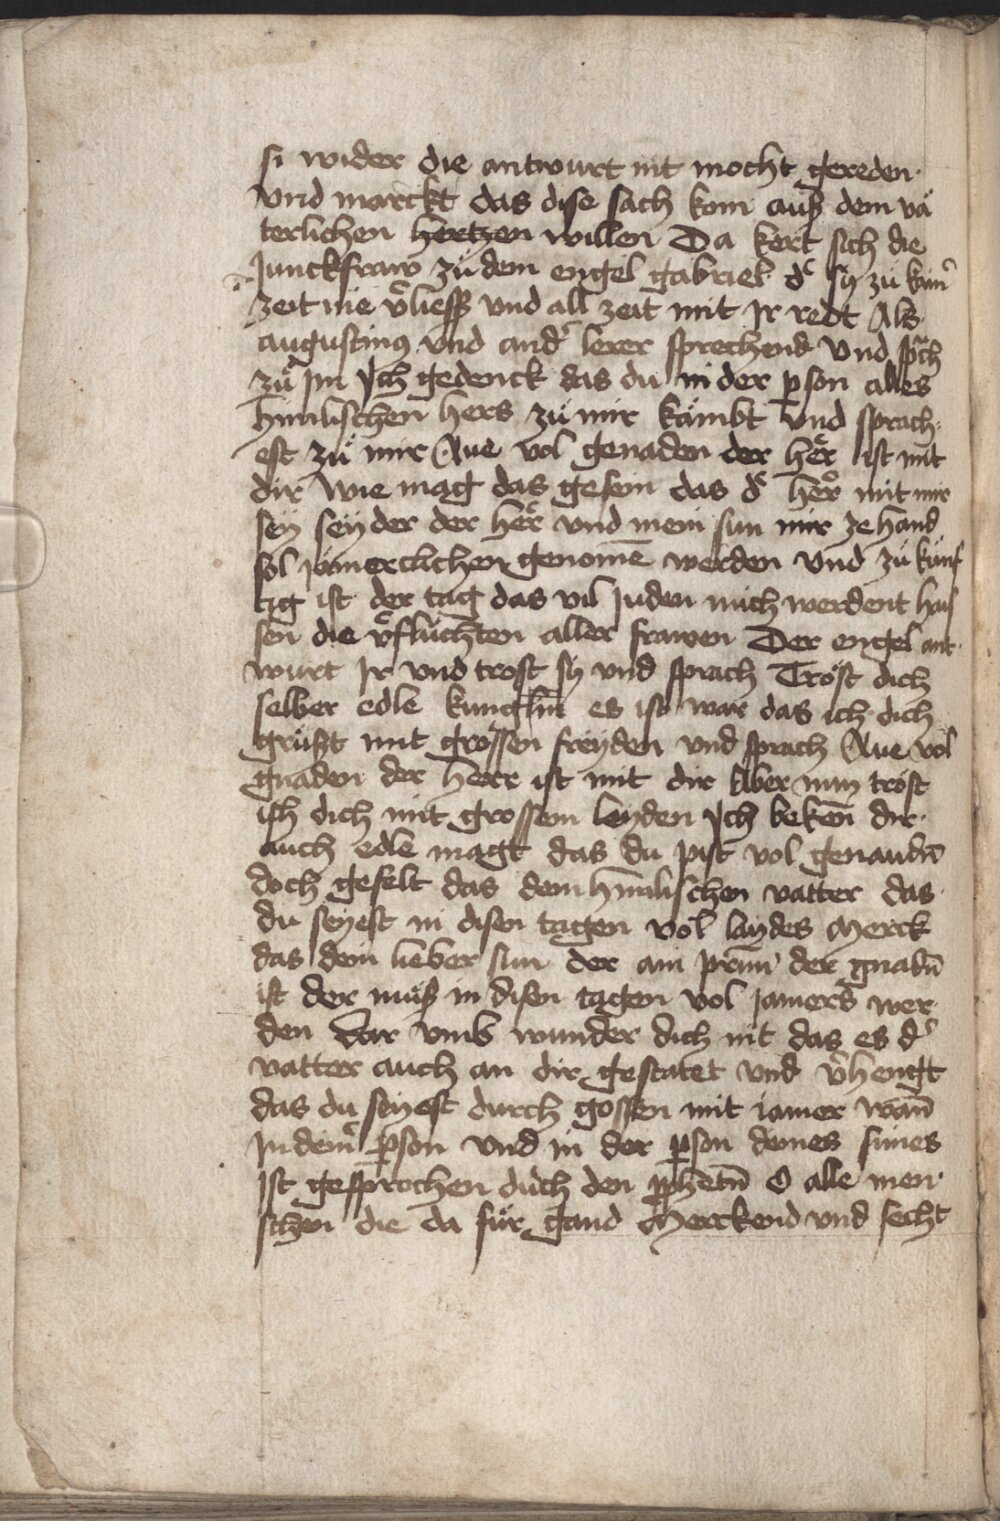 si wider die antwurt nit mocht gereden·
Vnd marckt das dise sach kom auß dem vä
terlichen hertzen willen Da kert sich die
Junckfraw zü dem engel gabriel d͛ sy zü kain͛
zeit nie v͛liess vnd all zeit mit Jr redt Als
augustinꝯ vnd and͛ lerer sprechend Vnd sp̃ch
zü Jm Jch gedenck das du in der ꝑson alles
himlischen hers zü mir kämbt Vnd sprach
est zü mir Aue vol genaden der her͛ ist mit
dir Wie mag das gesein das d͛ her͛ mit mir
sey seyder der her͛ vnd mein sun mir ze hand
sol jämerclichen genomē werden Vnd zü künf
tig ist der tag das vil Juden mich werdent hais
sen die v͛flüchten aller frawen Der engel ant·
wurt Jr vnd trost sy vnd sprach Tröst dich
selber edle kungl̃in es ist war das ich dich
grüßt mit grossen freyden vnd sprach Aue vol
gnaden der herr ist mit dir Aber nun tröst
ich dich mit grossem leyden Jch bekeñ dir·
auch edle magt das du pist vol genaudñ
doch gefelt das dem him̄lischen vatter das·
du seyest in disen tagen vol laydes Merck
das dein lieber sun der ain prun̄ der gnadñ
ist der müß in disen tagen vol jamers wer·
den Dar vmb wunder dich nit das es d͛
vatter auch an dir gestatet vnd v͛hengt
das du seyest durch gossen mit iamer wañ
Jn dein͛ ꝑson vnd in der ꝑson deines sunes
Jst gesprochen duch den ꝓphetñ O alle men·
schen die da für gand Merckend vnd secht